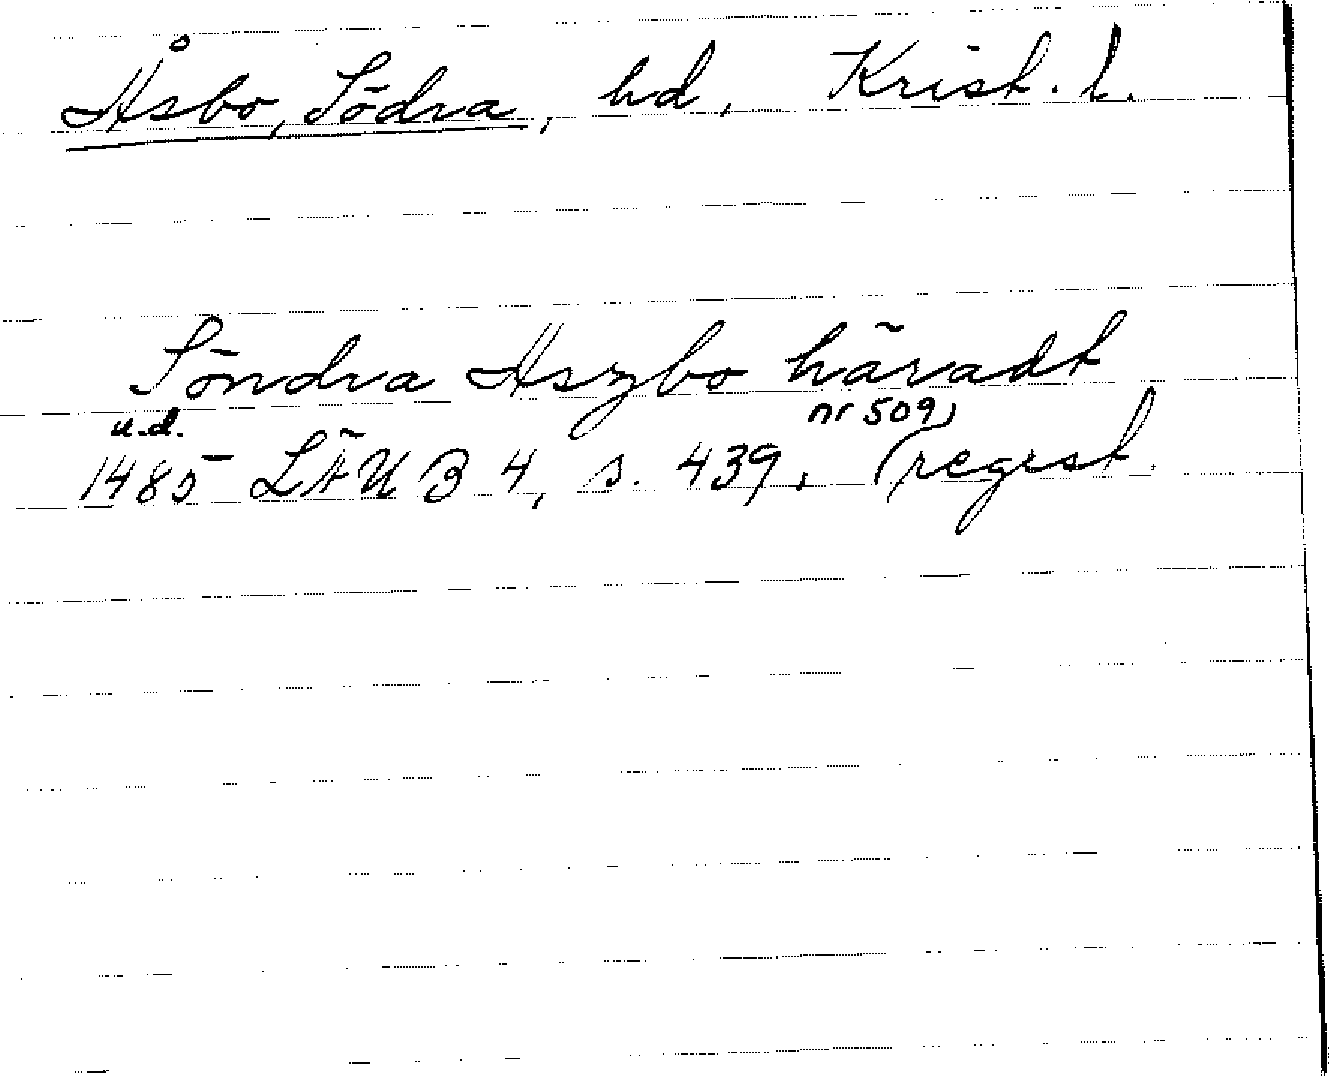 Åsbo, Södra, hd, Krist. l.
Söndra Aszbo häradt
u.d. nr 509,
1485 LÄUB 4, s. 439, (regest.